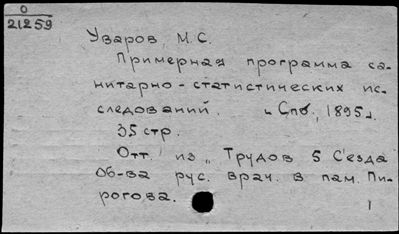 0
21259
Уваров, М.С.
Примерная программа са-
нитарно-статистических ис-
следований. "Спб., 1895".
35 стр.
Отт. из „Трудов 5 С'езда
Об-ва рус. врач. в пам. Пи-
рогова.
1